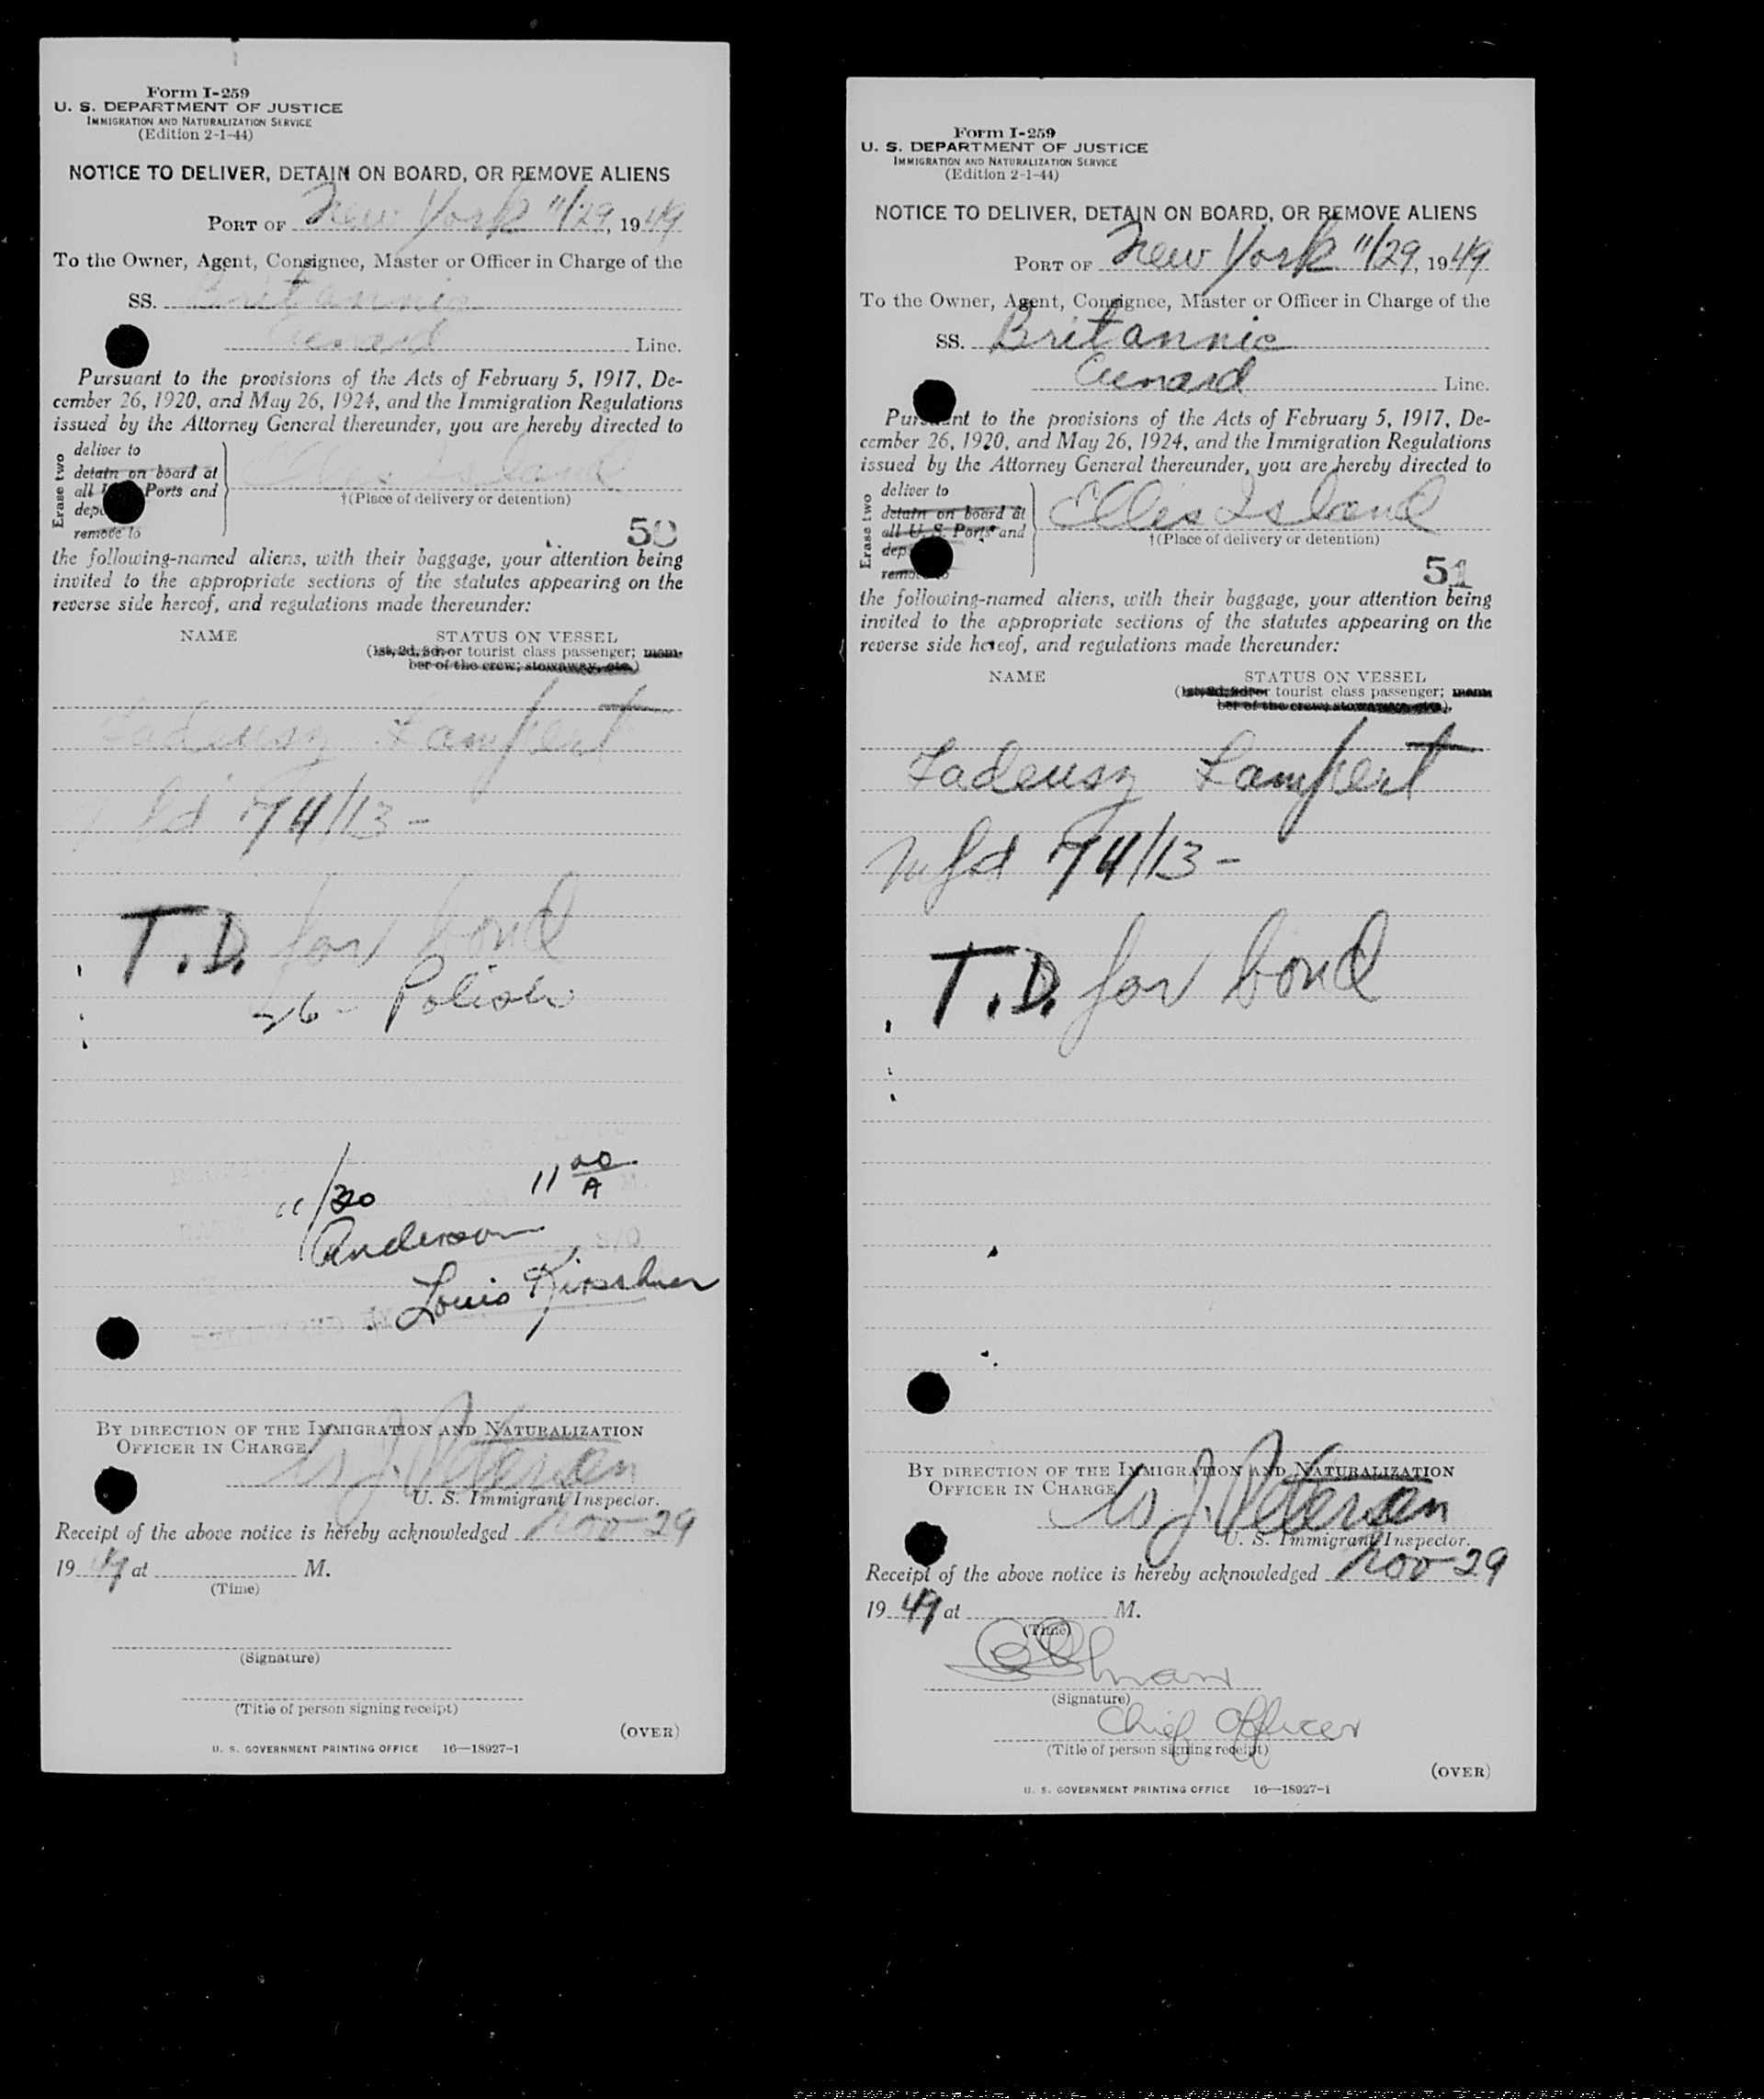 Form I-259
U. S. DEPARTMENT OF JUSTICE
IMMIGRATION AND NATURALIZATION SERVICE
(Edition 2-1-44)
NOTICE TO DELIVER, DETAIN ON BOARD, OR REMOVE ALIENS
PORT OF New York 11/29, 1949
To the Owner, Agent, Consignee, Master or Officer in Charge of the
SS. Britannic
Cunard Line.
Pursuant to the provisions of the Acts of February 5, 1917, De-
cember 26, 1920, and May 26, 1924, and the Immigration Regulations
issued by the Attorney General thereunder, you are hereby directed to
Erase two
deliver to
detain on board at
all Ports and
remove to
Ellis Island
†(Place of delivery or detention)
50
the following-named aliens, with their baggage, your attention being
invited to the appropriate sections of the statutes appearing on the
reverse side hereof, and regulations made thereunder:
NAME STATUS ON VESSEL
(1st, 2d, 3d, or tourist class passenger; mem-
ber of the crew; stowaway, etc.)
Tadeusz Lampert
74/13-
T.D. for bond
26- Polish
11/30 11 00 A
Anderson
Louis Kirschner
BY DIRECTION OF THE IMMIGRATION AND NATURALIZATION
OFFICER IN CHARGE.
W J. Petersen
U. S. Immigrant Inspector.
Receipt of the above notice is hereby acknowledged Nov 29
1949 at M.
(Time)
(Signature)
(Title of person signing receipt)
(OVER)
U. S. GOVERNMENT PRINTING OFFICE 16—18927-1
Form I-259
U. S. DEPARTMENT OF JUSTICE
IMMIGRATION AND NATURALIZATION SERVICE
(Edition 2-1-44)
NOTICE TO DELIVER, DETAIN ON BOARD, OR REMOVE ALIENS
PORT OF New York 11/29, 1949
To the Owner, Agent, Consignee, Master or Officer in Charge of the
SS. Britannic
Cunard Line.
Pursuant to the provisions of the Acts of February 5, 1917, De-
cember 26, 1920, and May 26, 1924, and the Immigration Regulations
issued by the Attorney General thereunder, you are hereby directed to
Erase two
deliver to
detain on board at
all U. S. Ports and
Ellis Island
†(Place of delivery or detention)
51
the following-named aliens, with their baggage, your attention being
invited to the appropriate sections of the statutes appearing on the
reverse side hereof, and regulations made thereunder:
NAME STATUS ON VESSEL
(1st, 2d, 3d, or tourist class passenger; mem-
ber of the crew; stowaway, etc.)
Tadeusz Lampert
Mfd 74/13-
T.D. for bond
BY DIRECTION OF THE IMMIGRATION AND NATURALIZATION
OFFICER IN CHARGE
W J. Petersen
U. S. Immigrant Inspector.
Receipt of the above notice is hereby acknowledged Nov 29
1949 at M.
(Time)
(Signature)
Chief Officer
(Title of person signing receipt)
(OVER)
U. S. GOVERNMENT PRINTING OFFICE 16—18927-1